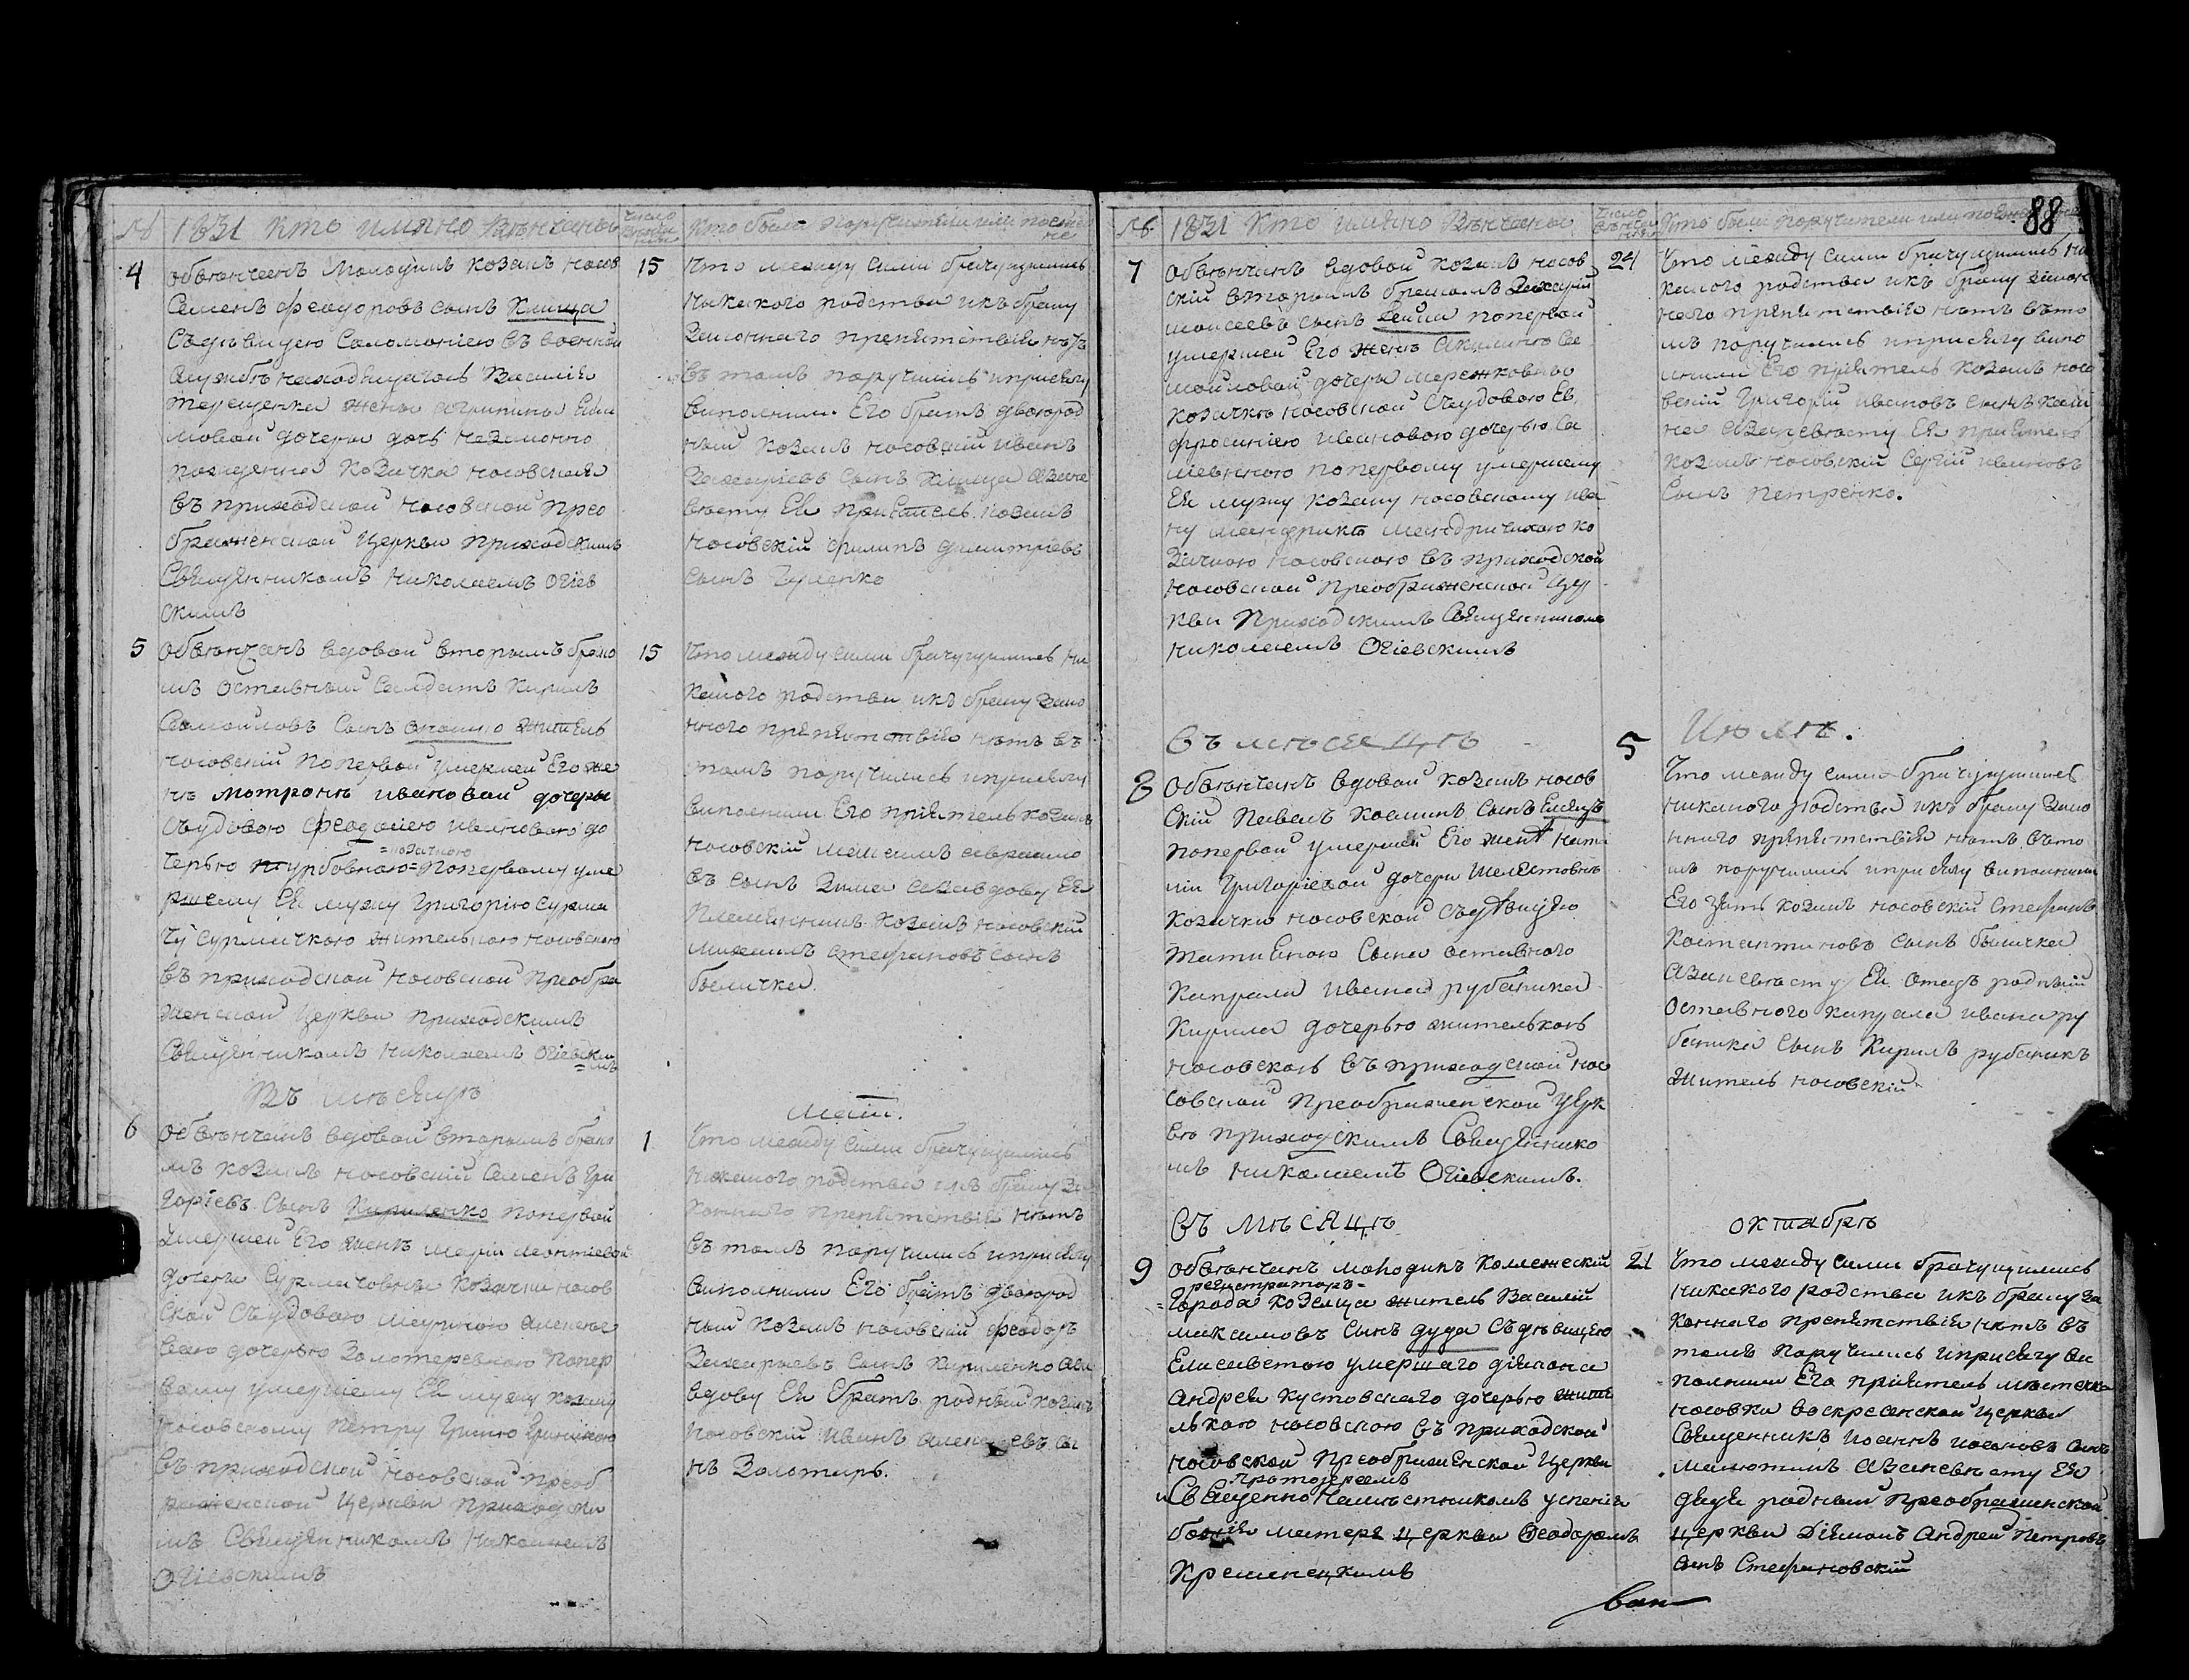 № 1831 Кто имяно Венчаны
число венчания
Кто были поручители или поезжане
4
обвенчанъ молодикъ козакъ носов
Семенъ Феодоровъ сынъ Клища
Съ девицею Соломониею въ военной
службе находящагось Василия
Терещенка жены Агрипины Ефи
мовой дочери дочь незаконно
рожденна козачка носовская
въ приходской носовской Прео
браженской церкви приходскимъ
Священникомъ Николаемъ Огиев
скимъ
15
Что между сими брачущимись
никакого родства икъ браку
законнаго препятствия нетъ
въ томъ поручились иприсягу
виполнили Его братъ двоюрод
ный козакъ носовский Иванъ
Захариевъ сынъ Клища азане
весту Ея приятель козакъ
носовский Филипъ Димитриевъ
сынъ Гуленко
5
Обвенчанъ вдовой вторымъ брако
мъ Оставный Салдатъ Кирилъ
Самойловъ сынъ житель
носовский попервой умершей Его же
не Мотроне Ивановой дочеры
Съудовою Феодосиею Ивановою до
черью =козачкою= попервому уме
ршему Ея мужу Григорию Сурма
чу Сурмачкою жителкою носовскою
въ приходской носовской Преобра
женской церкви приходскимъ
Священникомъ Николаемъ Огиевски
=мъ
15
Что между сими брачущимись ни
какого родства икъ браку зако
нного препятствия нетъ въ
томъ поручились иприсягу
виполнили Его приятель козакъ
носовский
въ сынъ Зима вдову Ея
Племянникъ козакъ носовский
Михаилъ Стефановъ сынъ
Быличка.
Въ месяце
Маии.
6
Обвенчанъ вдовой вторымъ брако
мъ козакъ носовский Семенъ Гри
гориевъ Сынъ Кириленко попервой
умершей Его жене Марии Леонтиевой
дочери Сурмачовне козачки носов
ской Съудовою Мариною Алексее
вою дочерью Золотаревною попер
вому умершему Ея мужу козаку
носовскому Петру
въ приходской носовской Преоб
раженской церкви приходски
мъ Священникомъ Николаемъ
Огиевскимъ
1
Что между сими брачущимись
никакого родства икъ браку за
коннаго препятствия нетъ
въ томъ поручились иприсягу
виполнили Его братъ двоюрод
ный козакъ носовский Феодоръ
Захариевъ Сынъ Кириленко аза
вдову Ея братъ родный козакъ
носовский Иванъ Алексеевъ сы
нъ Золотарь.
88
№ 1831 Кто имяно Венчаны
число венчания
Кто были поручители или
7
Обвенчанъ вдовой козакъ носов
ский вторымъ бракомъ Захарий
Моисеевъ сынъ попервой
умершей Его жене Акилине Са
мойловой дочери Мережковною
козачке носовской Съудовою Ев
фросиниею Ивановою дочерью
попервому умершему
Ея мужу козаку носовскому Ива
ну Мандрике Мандричихою ко
зачкою носовскою въ приходской
носовской Преображенской цер
кви Приходскимъ Священникомъ
Николаемъ Огиевскимъ
24
Что между сими брачущимись ни
какого родства икъ браку закон
наго препятствия нетъ въто
мъ поручились иприсягу випо
лнили Его приятель козакъ носо
вский Григорий Ивановъ сынъ
азаневесту Ея приятель
козакъ носовский Сергий Ивановъ
Сынъ Петренко.
Въ месяце
Июле.
8
Обвенчанъ вдовой козакъ носов
ский Павелъ Козминъ сынъ
попервой умершей Его жене Ната
лии Григориевой дочери
козачки носовской Съдевицею
Татияною Сына оставного
Капрала Ивана рубаника
Кирила дочерью жителькою
носовскою въ приходской нос
совской Преображенской церк
ве приходскимъ Священнико
мъ Николаемъ Огиевскимъ.
5
Что между сими брачущимись
никакого родства икъ браку зако
ннаго препятствия нетъ въто
мъ поручились иприсягу виполнили
Его зять козакъ носовский Стефанъ
Костантиновъ сынъ быличка
азаневесту Ея Отецъ родный
оставного капрала Ивана ру
баника сынъ Кирилъ рубаникъ
житель носовский
Въ месяце
октябре
9
обвенчанъ молодикъ Коллежский
регистраторъ=
=города козелца житель Василий
Максимовъ сынъ дуда Съдевицею
Елисаветою умершаго диякона
Андрея Кустовскаго дочерью жите
лькою носовскою въ приходской
носовской Преображенской церкви
протоиереемъ
Священно Наместникомъ успения
божия матеря церкви Феодоромъ
Кременецкимъ
21
Что между сими брачущимись
никакого родства икъ браку за
коннаго препятствия нетъ въ
томъ поручились иприсягу ви
полнили Его приятель местечка
носовки воскресенской церкви
Священникъ Иоаннъ Иоановъ сынъ
азаневесту Ея
дядя родный Преображенской
церкви Дияконъ Андрей Петровъ
сынъ Стефановский